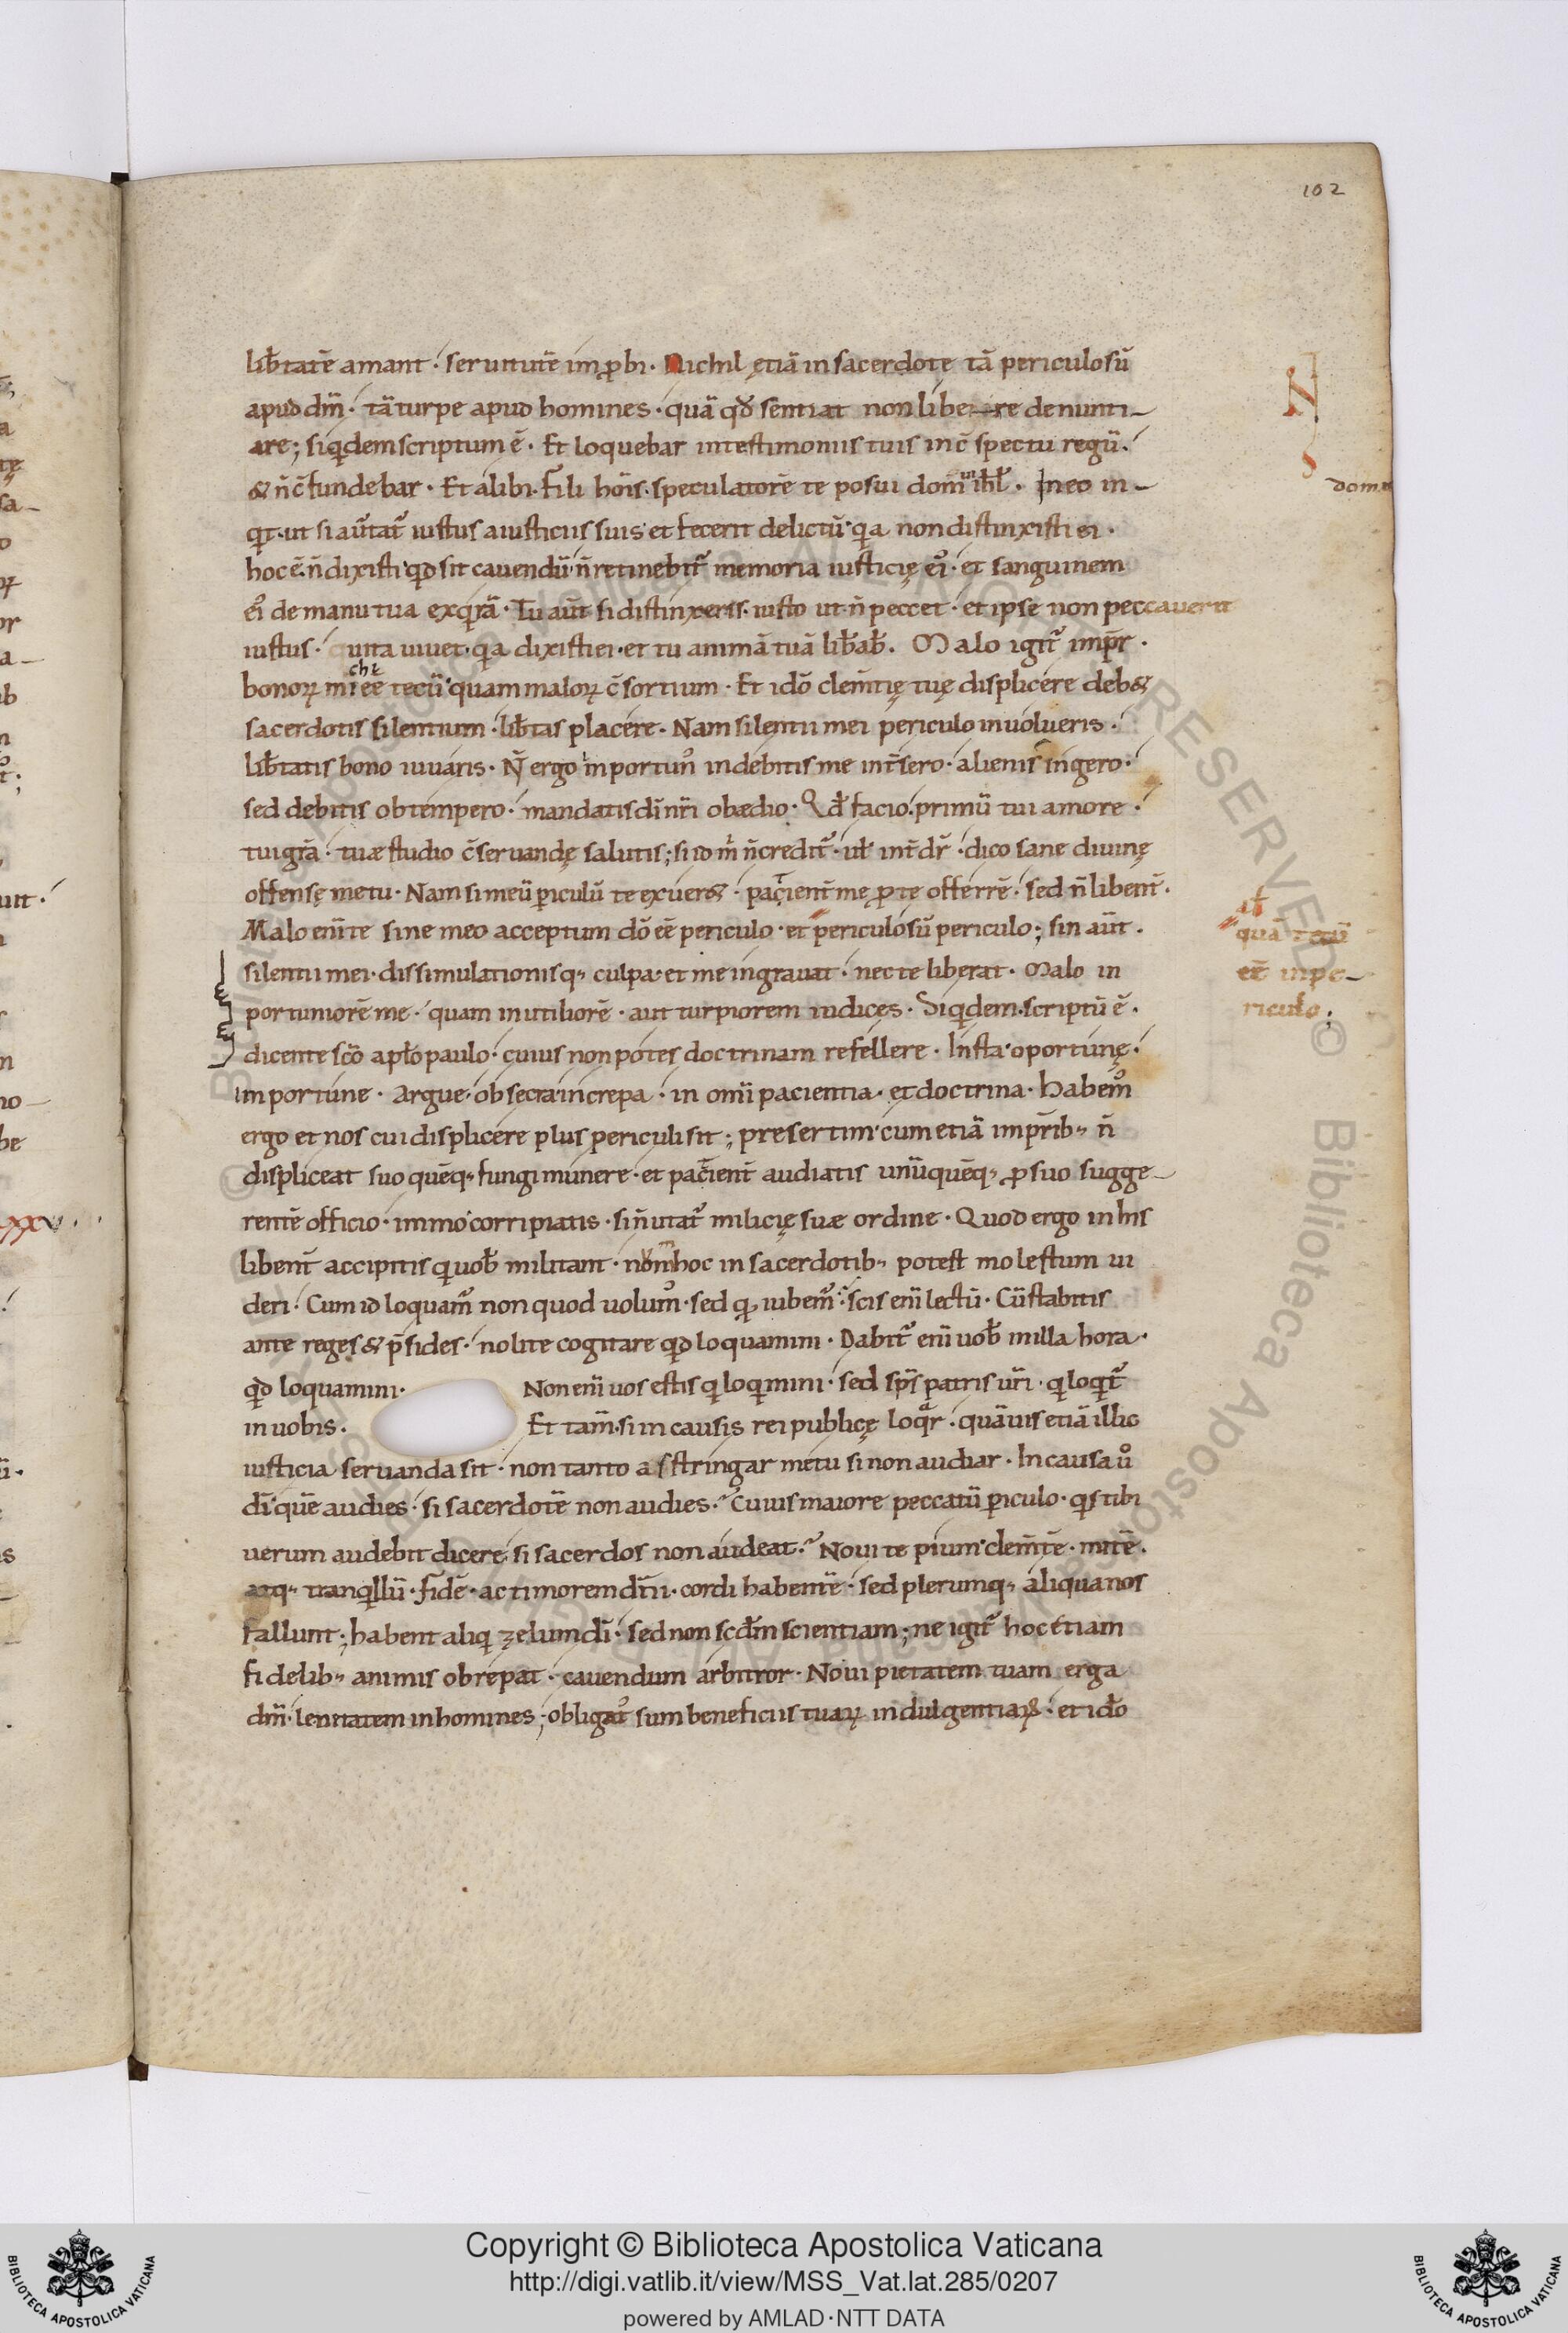 102
lib̄tatē amant · seruitutē im ꝓbi · Nichil ętiā in sacerdote tā periculosū
apud dm̄ · tā turpe apud homines · quā qđ sentiat non libe—re denunti—
are ; siqdem scriptum ē · Et loquebar in testimoniis tuis in c̄ spectu regū ·
& n̄ c̄fundebar · Et alibi · Fili hōis · speculatorē te posui dom̄ iħl · In eo in—
qt · ut si aū̄tat᷑ iustus a iusticiis suis · et fecerit delictū · qa non distinxisti ei ·
hoc ē · n̄ dixisti qd sit cauendū · n̄ retinebit᷑ memoria iusticię ei᷒ · et sanguinem
ei᷒ de manu tua exqrā · Tu aūt si distinxeris · iusto ut · n̄ peccet · et ipse non peccauerit
iustus · uita uiuet · qa dixisti ei · et tu animā tuā lib̄ab̄ · Malo igit᷑ imp̄r ·
bonoꝝ mi eē tecū · quam maloꝝ c̄sortium · Et idō clem̄tię tuę displicere deb&
sacerdotis silentium · lib̄tas placere · Nam silentii mei periculo inuolueris ·
lib̄tatis bono iuuaris · N̄ ergo inportun᷒ indebitis me int̄sero · alienis ingero ·
sed debitis obtempero · mandatis dī nr̄i obædio · Qđ facio · primū tui amore ·
tui grā · tuæ studio c̄seruandę salutis ; si id m̄ n̄ credit᷑ · ut̄ int̄dr̄ · dico sane diuinę
offensę metu · Nam si meū ꝑiculū te exuer& · pacient̄ me ꝓ te offerrē · sed n̄ libent̄ ·
Malo enī te sine meo acceptum dō eē periculo · et periculosū periculo ; sin aūt ·
silentii mei · dissimulationisq · culpa · et me ingrauat · nec te liberat · Malo in
portuniorē me · quam inutiliorē · aut turpiorem iudices · Siqdem scriptū ē ·
dicente scō aplō paulo · cuius non potes doctrinam refellere · Insta · oportune ·
importune · Argue · obsecra · increpa · in omī pacientia · et doctrina · Habem᷒
ergo et nos cui displicere plus periculi sit ; presertim · cum etiā imp̄rib · n̄
displiceat suo quēq · fungi munere · et pacient̄ audiatis unūquēq · ꝓ suo sugge—
rentē officio · immo corripiatis · si n̄ utat᷑ milicię suæ ordine · Quod ergo in his
libent̄ accipitis q uob̄ militant · nom hoc in sacerdotib · potest molestum ui
deri · Cum id loquam᷒ non quod uolum᷒ · sed qđ iubem᷒ · scis enī lectū · Cū stabitis
ante reges & p̄sides · nolite cogitare qd loquamini · Dabit᷑ enī uob̄ in illa hora ·
qd loquamini · Non enī uos estis q loqmini · sed sp̄s patris ur̄i · q loqt᷑
in uobis · Et tam̄ · si in causis rei publicę loqr · quāuis etiā illic
iusticia seruanda sit · non tanto astringar metu si non audiar · In causa ů
dī · quē audies · si sacerdotē non audies · Cuius maiore peccatū ꝑiculo · qs tibi
uerum audebit dicere si sacerdos non audeat · Noui te pium · clem̄tē · mitē ·
atq · tranqllū · fidē · ac timorem dn̄i · cordi habentē · sed plerumq · aliqua nos
fallunt ; habent aliq zelum dī · sed non scdm scientiam ; ne igit᷑ hoc etiam
fidelib · animis obrepat · cauendum arbitror · Noui pietatem tuam erga
dm̄ · lenitatem in homines ; obligat᷒ sum beneficiis tuaꝝ indulgentiaꝝ · et idō
N
quā tecū
eē inpe—
riculo ;
Copyright © Biblioteca Apostolica Vaticana
http://digi.vatlib.it/view/MSS_Vat.lat.285/0207
powered by AMLAD·NTT DATA
BIBLIOTECA APOSTOLICA VATICANA
BIBLIOTECA APOSTOLICA VATICANA